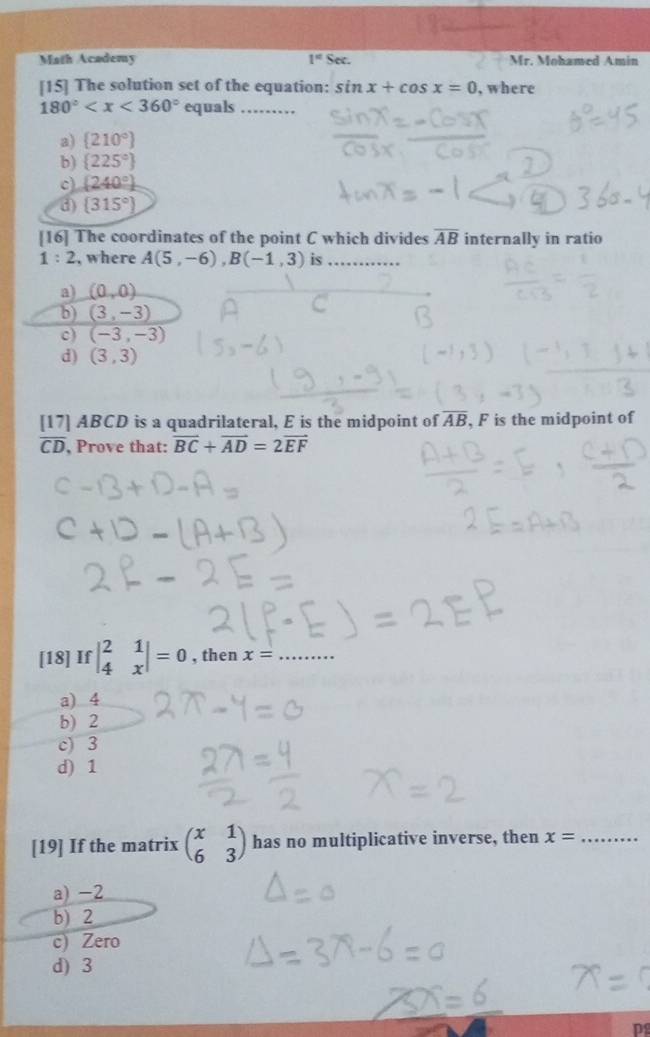 Math Academy 1st Sec. Mr. Mohamed Amin
[15] The solution set of the equation: sin x + cos x = 0, where
180° < x < 360° equals .........
sinx = -cosx
cosx cosx
θ° = 45
a) {210°}
b) {225°}
c) {240°}
d) {315°}
tanx = -1
2
4
360-4
[16] The coordinates of the point C which divides AB internally in ratio
1 : 2, where A(5 , -6) , B(-1 , 3) is ............
a) (0 , 0)
b) (3 , -3)
c) (-3 , -3)
d) (3 , 3)
1 2
A C B
AC/CB = 1/2
(5, -6) (-1, 3)
(9, -9)/3 = (3, -3)
3
[17] ABCD is a quadrilateral, E is the midpoint of AB, F is the midpoint of
CD, Prove that: BC + AD = 2EF
A+B/2 = E , C+D/2
C-B+D-A=
2E = A+B
C+D-(A+B)
2F - 2E =
2(F-E) = 2EF
[18] If |2 1|
|4 x| = 0 , then x = .........
a) 4
b) 2
c) 3
d) 1
2x-4=0
2x/2 = 4/2
x = 2
[19] If the matrix (x 1)
(6 3) has no multiplicative inverse, then x = .........
a) -2
b) 2
c) Zero
d) 3
Δ=0
Δ=3x-6=0
3x = 6
x =
pg